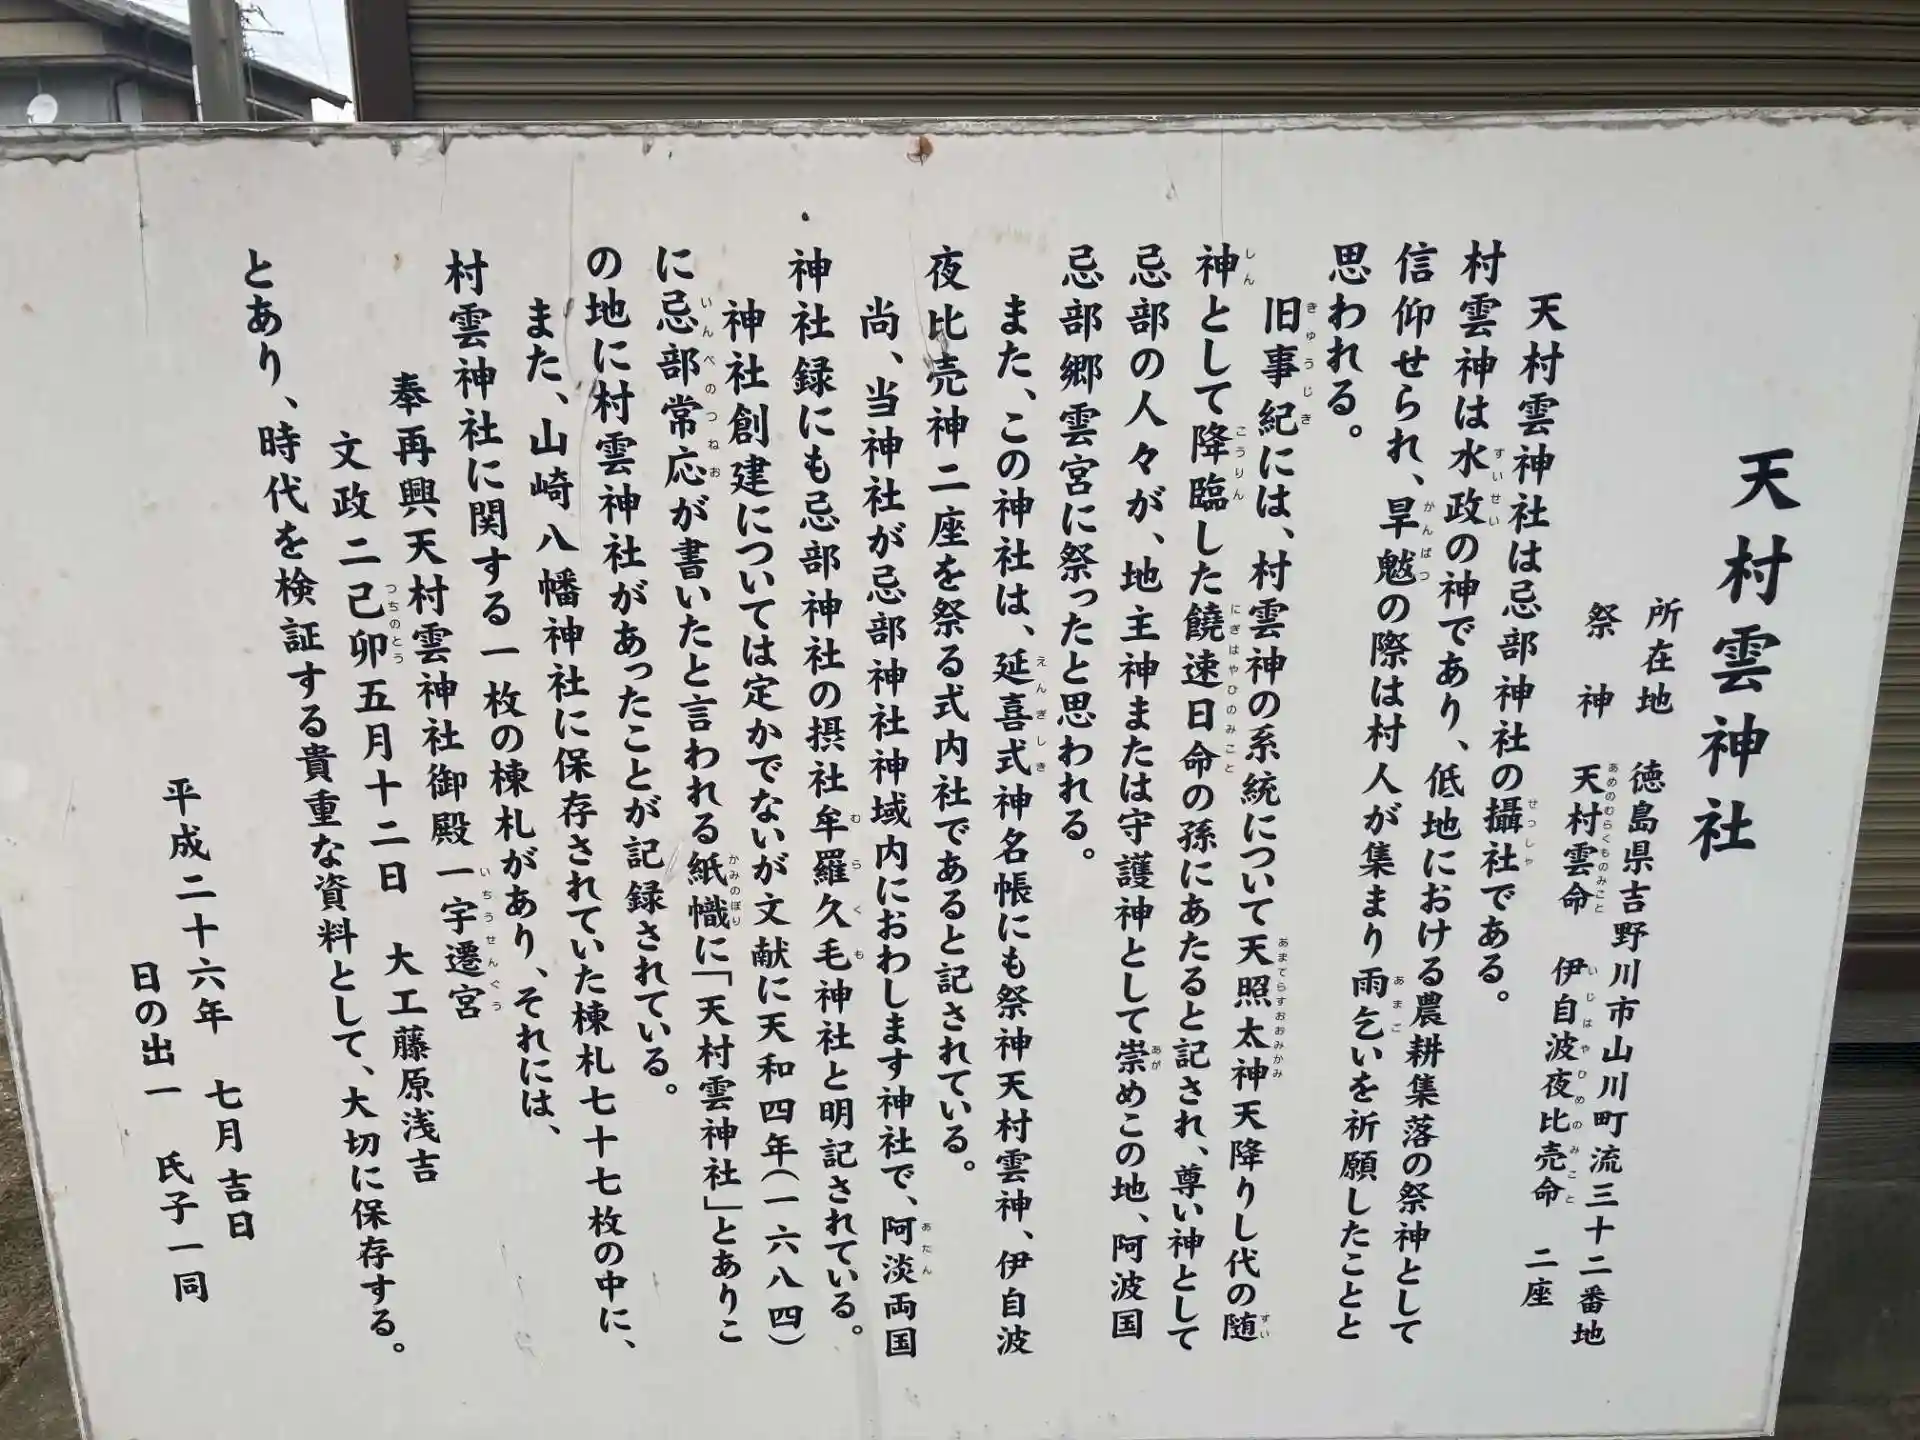 天村雲神社
所在地　徳島県吉野川市山川町流三十二番地
祭　神　天村雲命　伊自波夜比売命　二座
天村雲神社は忌部神社の攝社である。
村雲神は水政の神であり、低地における農耕集落の祭神として
信仰せられ、旱魃の際は村人が集まり雨乞いを祈願したことと
思われる。
旧事紀には、村雲神の系統について天照太神天降りし代の随
神として降臨した饒速日命の孫にあたると記され、尊い神として
忌部の人々が、地主神または守護神として崇めこの地、阿波国
忌部郷雲宮に祭ったと思われる。
また、この神社は、延喜式神名帳にも祭神天村雲神、伊自波
夜比売神二座を祭る式内社であると記されている。
尚、当神社が忌部神社神域内におわします神社で、阿淡両国
神社録にも忌部神社の摂社牟羅久毛神社と明記されている。
神社創建については定かでないが文献に天和四年(一六八四)
に忌部常応が書いたと言われる紙幟に「天村雲神社」とありこ
の地に村雲神社があったことが記録されている。
また、山崎八幡神社に保存されていた棟札七十七枚の中に、
村雲神社に関する一枚の棟札があり、それには、
奉再興天村雲神社御殿一宇遷宮
文政二己卯五月十二日　大工藤原浅吉
とあり、時代を検証する貴重な資料として、大切に保存する。
平成二十六年　七月吉日
日の出一　氏子一同